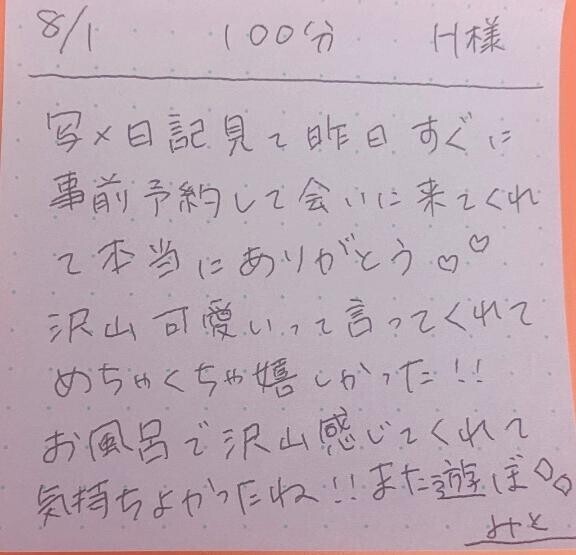 8/1 100分 H様
写メ日記見て昨日すぐに
事前予約して会いに来てくれ
て本当にありがとう♡♡
沢山可愛いって言ってくれて
めちゃくちゃ嬉しかった!!
お風呂で沢山感じてくれて
気持ちよかったね!!また遊ぼ♡♡
みと